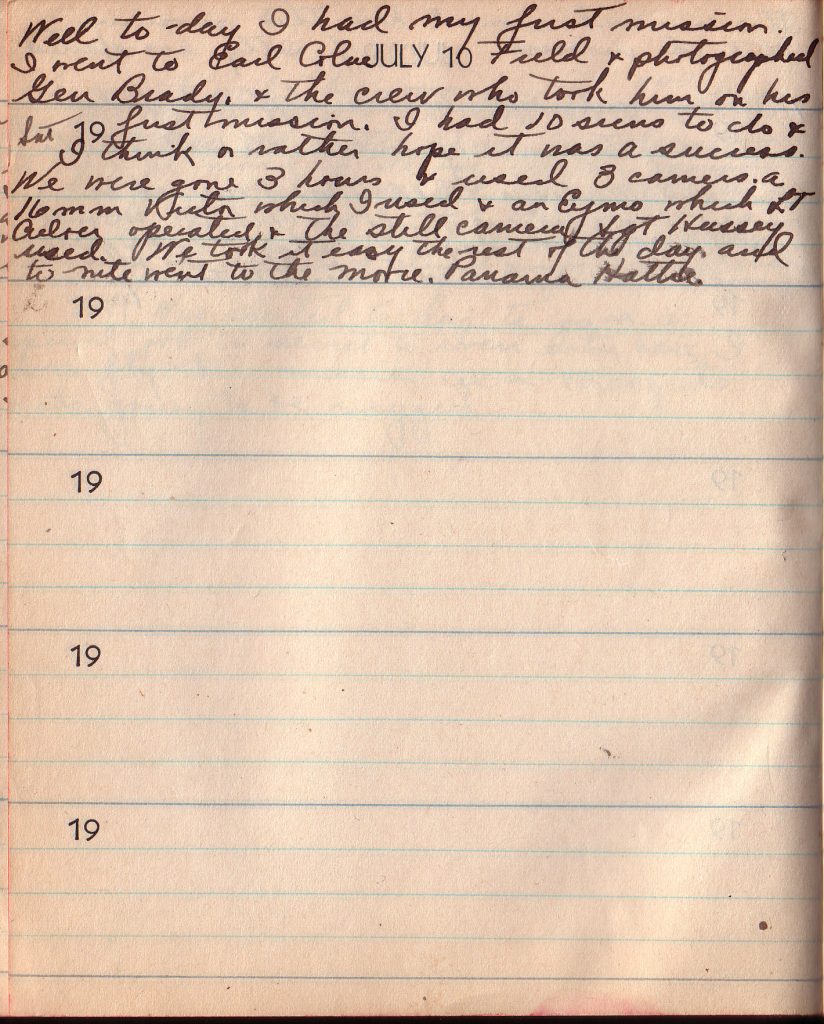 Well to-day I had my first mission.
I went to Earl Colne JULY 10 Field & photographed
Gen Brady. & the crew who took him on his
Sat 19 first mission. I had 10 scens to do &
I think or rather hope it was a success.
We were gone 3 hours & used 3 camers. a
16 mm Victor which I used & an Eymo which LT
operated & the still camera Sgt Hussey
used. We took it easy the rest of the day and
to nite went to the movie. Panama Hattie.
19
19
19
19